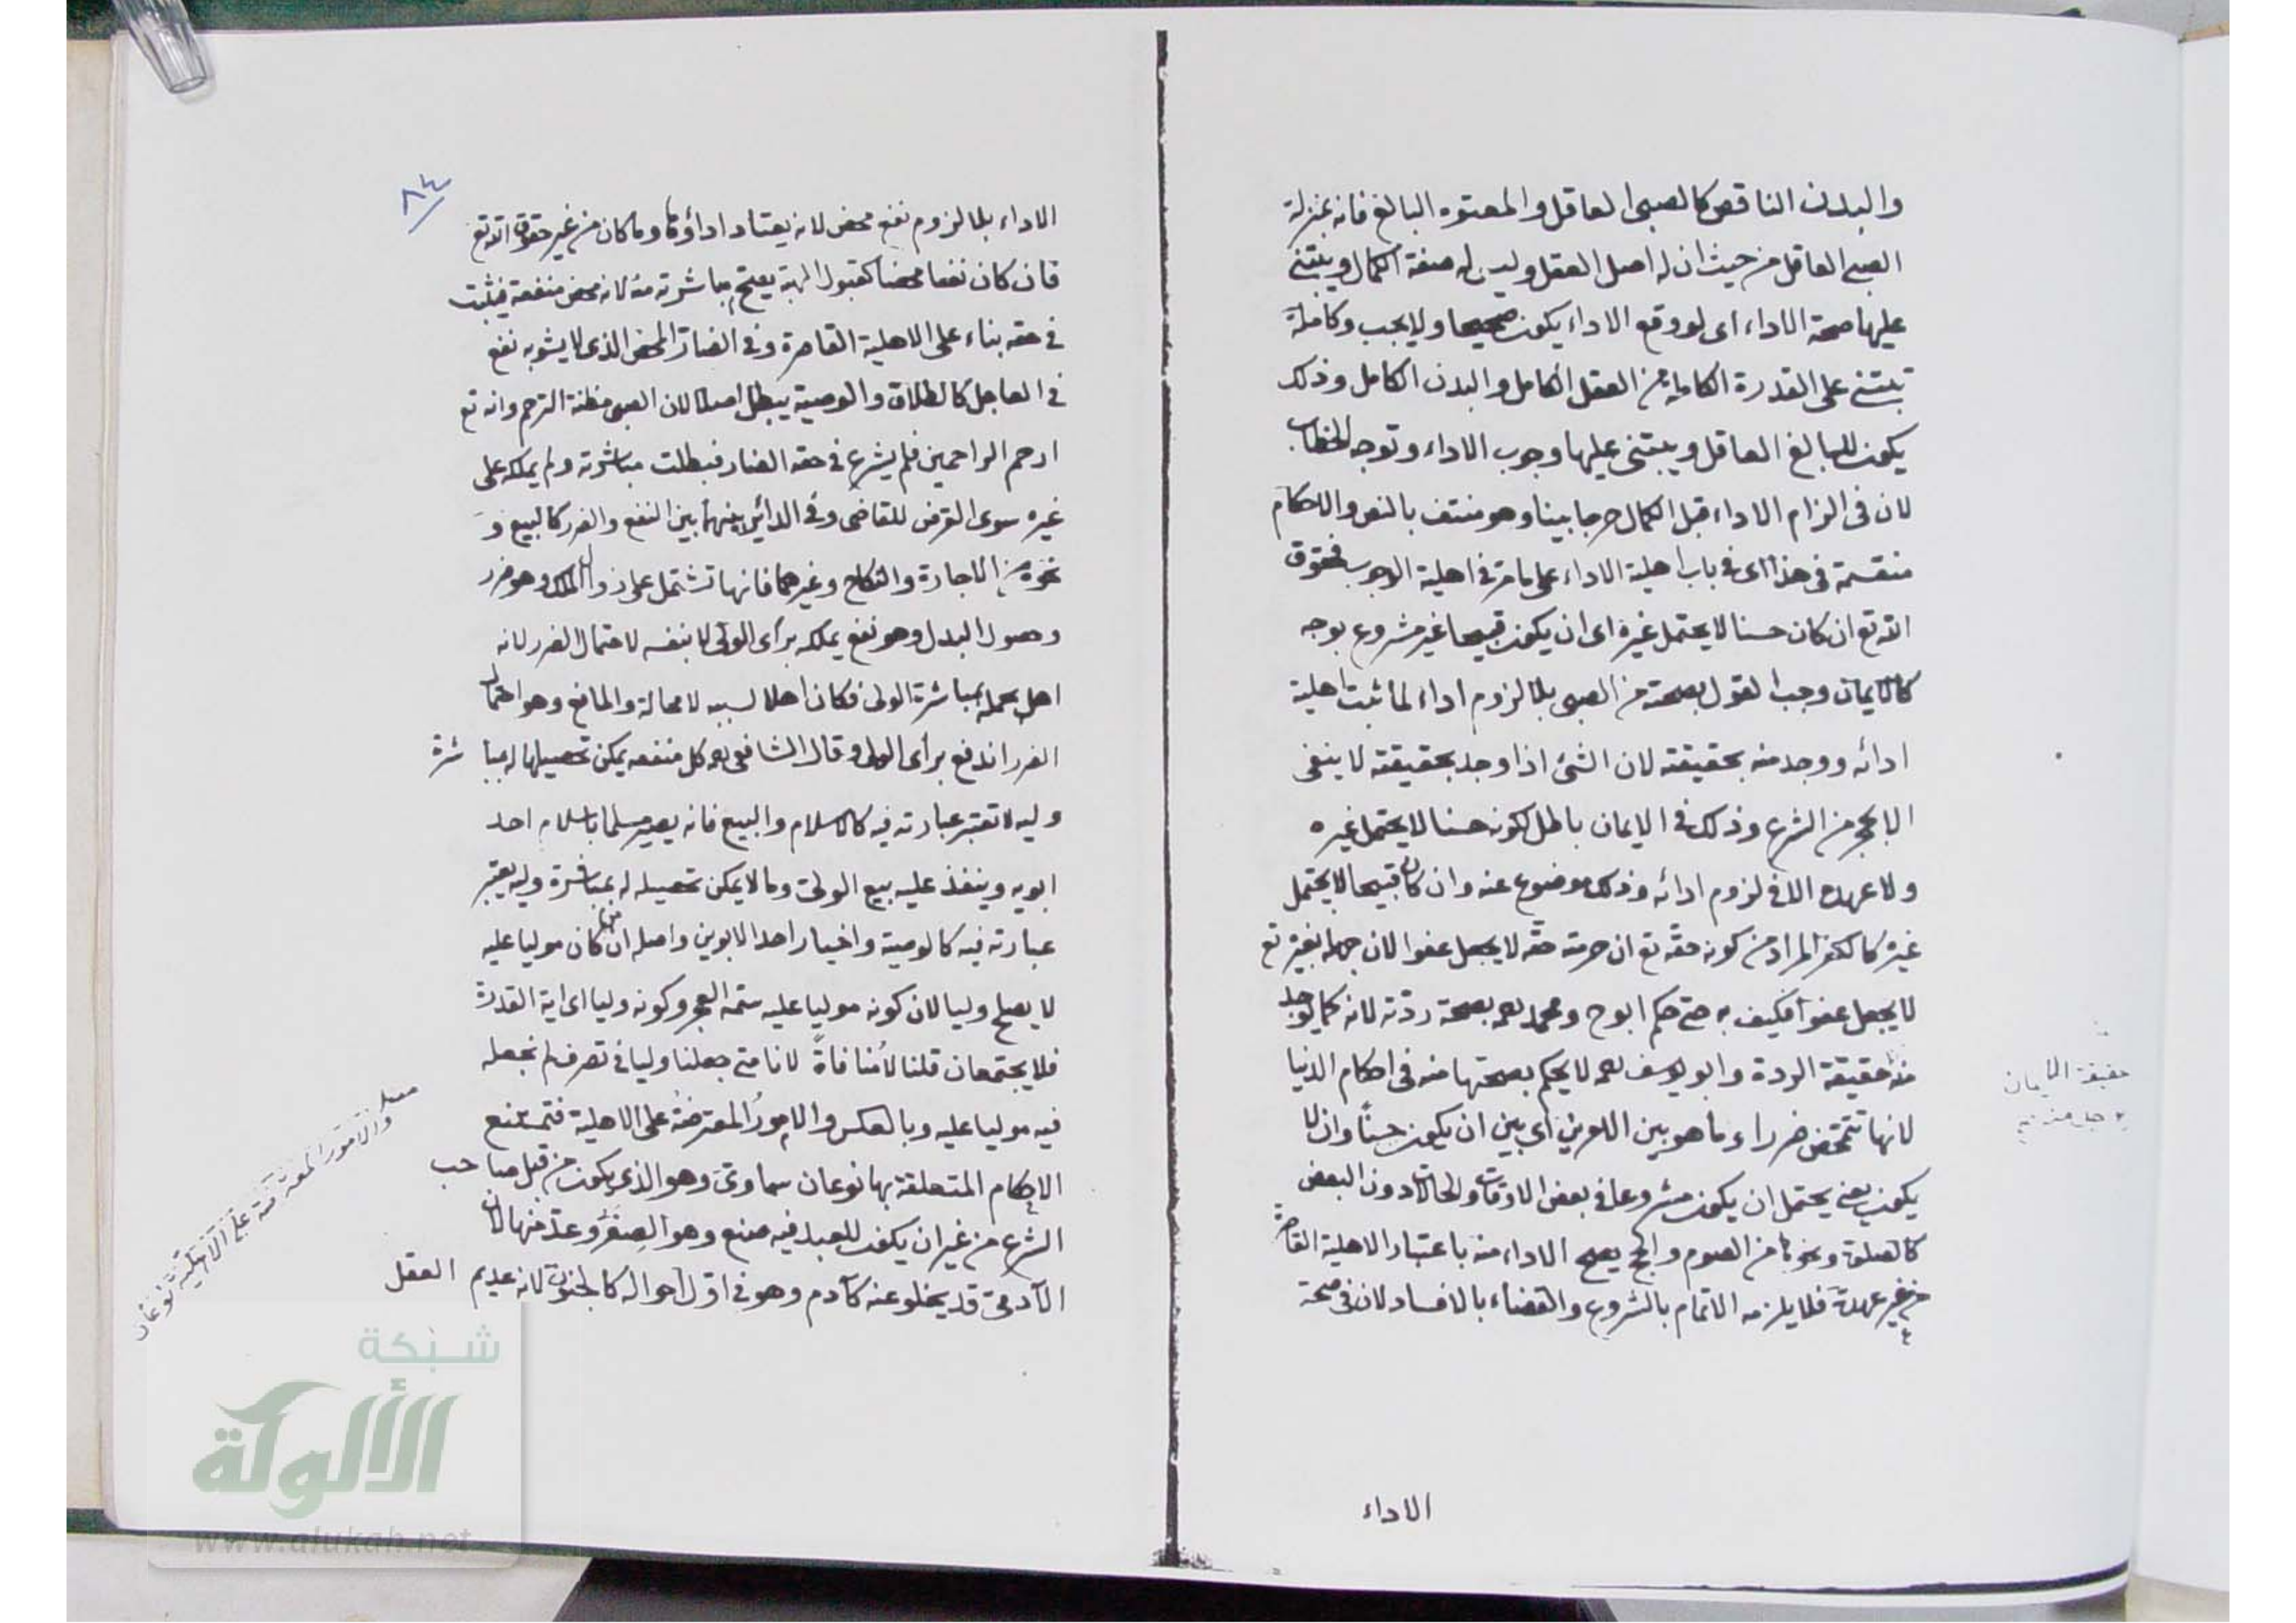 والبدن الناقص كالصبى العاقل والمعتوه البالغ فانه بمنزلة
الصبى العاقل من حيث ان له اصل العقل وليس له صفة الكمال ويبتنى
عليها صحة الاداء اى لو وقع الاداء يكون صحيحا ولا يجب وكاملة
تبتنى على القدرة الكاملة من العقل الكامل والبدن الكامل وذلك
يكون للبالغ العاقل ويبتنى عليها وجوب الاداء وتوجه الخطاب
لان فى الزام الاداء قبل الكمال حرجا بينا وهو منتف بالنص والاحكام
منقسمة فى هذا اى فى باب اهلية الاداء على ما مر فى اهلية الوجوب فحقوق
الله تع ان كان حسنا لا يحتمل غيره اى ان يكون قبيحا غير مشروع بوجه
كالايمان وجب القول بصحته من الصبى بلا لزوم اداء لما ثبت اهلية
ادائه ووجد منه بحقيقته لان الشئ اذا وجد بحقيقته لا ينفى
الا بحجر من الشرع وذلك فى الايمان باطل لكونه حسنا لا يحتمل غيره
ولا عهدة الا فى لزوم ادائه وذلك موضوع عنه وان كان قبيحا لا يحتمل
غيره كالكفر المراد من كونه حقه تع ان حرمته حقه لا يجعل عفوا لان جهله بغيره تع
لا يجعل عفوا فكيف به حتى حكم ابو ح ومحمد رحمه بصحة ردته لانه كما يوجد
منه حقيقة الردة وابو يوسف رحمه لا يحكم بصحتها منه فى احكام الدنيا
لانها تتمحض ضررا وما هو بين الامرين اى بين ان يكون حسنا وان لا
يكون يعنى يحتمل ان يكون مشروعا فى بعض الاوقات والحالات دون البعض
كالصلوة ونحوها من الصوم والحج يصح الاداء منه باعتبار الاهلية القاصرة
من غير عهدة فلا يلزمه الاتمام بالشروع والقضاء بالافساد لان فى صحة
الاداء
حقيقة الايمان
٨٤
الاداء بلا لزوم نفع محض لانه يعتاد اداؤها وما كان من غير حقوق الله تع
فان كان نفعا محضا كقبول الهبة يصح مباشرته منه لانه محض منفعة فيثبت
فى حقه بناء على الاهلية القاصرة وفى الضار المحض الذى لا يشوبه نفع
فى العاجل كالطلاق والوصية يبطل اصلا لان الصبى مظنة الترحم وانه تع
ارحم الراحمين فلم يشرع فى حقه الضار فبطلت مباشرته ولم يملكه على
غيره سوى القرض للقاضى وفى الدائر بينهما بين النفع والضرر كالبيع و
نحوه من الاجارة والنكاح وغيرهما فانها تشتمل على زوال الملك وهو ضرر
وحصول البدل وهو نفع يملكه برأى الولى لا بنفسه لاحتمال الضرر لانه
اهل بحمله بمباشرة الولى فكان اهلا لسببه لا محالة والمانع وهو احتمال
الضرر اندفع برأى الولى وقال الشافعى رحمه كل منفعة يمكن تحصيلها له مبا شرة
وليه لا تعتبر عبارته فيه كالاسلام والبيع فانه يصير مسلما باسلام احد
ابويه وينفذ عليه بيع الولى وما لا يمكن تحصيله له بمباشرة وليه يعتبر
عبارته فيه كالوصية واختيار احد الابوين واصله ان من كان موليا عليه
لا يصلح وليا لان كونه موليا عليه سمة العجز وكونه وليا اى اية القدرة
فلا يجتمعان قلنا لا منافاة لانا متى جعلنا وليا فى تصرف لم نجعله
فيه موليا عليه وبالعكس والامور المعترضة على الاهلية فتمتنع
الاحكام المتعلقة بها نوعان سماوى وهو الذى يكون من قبل صاحب
الشرع من غير ان يكون للعبد فيه صنع وهو الصغر وعد منها لان
الآدمى قد يخلو عنه كآدم وهو فى اول احواله كالجنون لانه عديم العقل
والامور المعترضة على الاهلية نوعان
شبكة
الألوكة
www.alukah.net